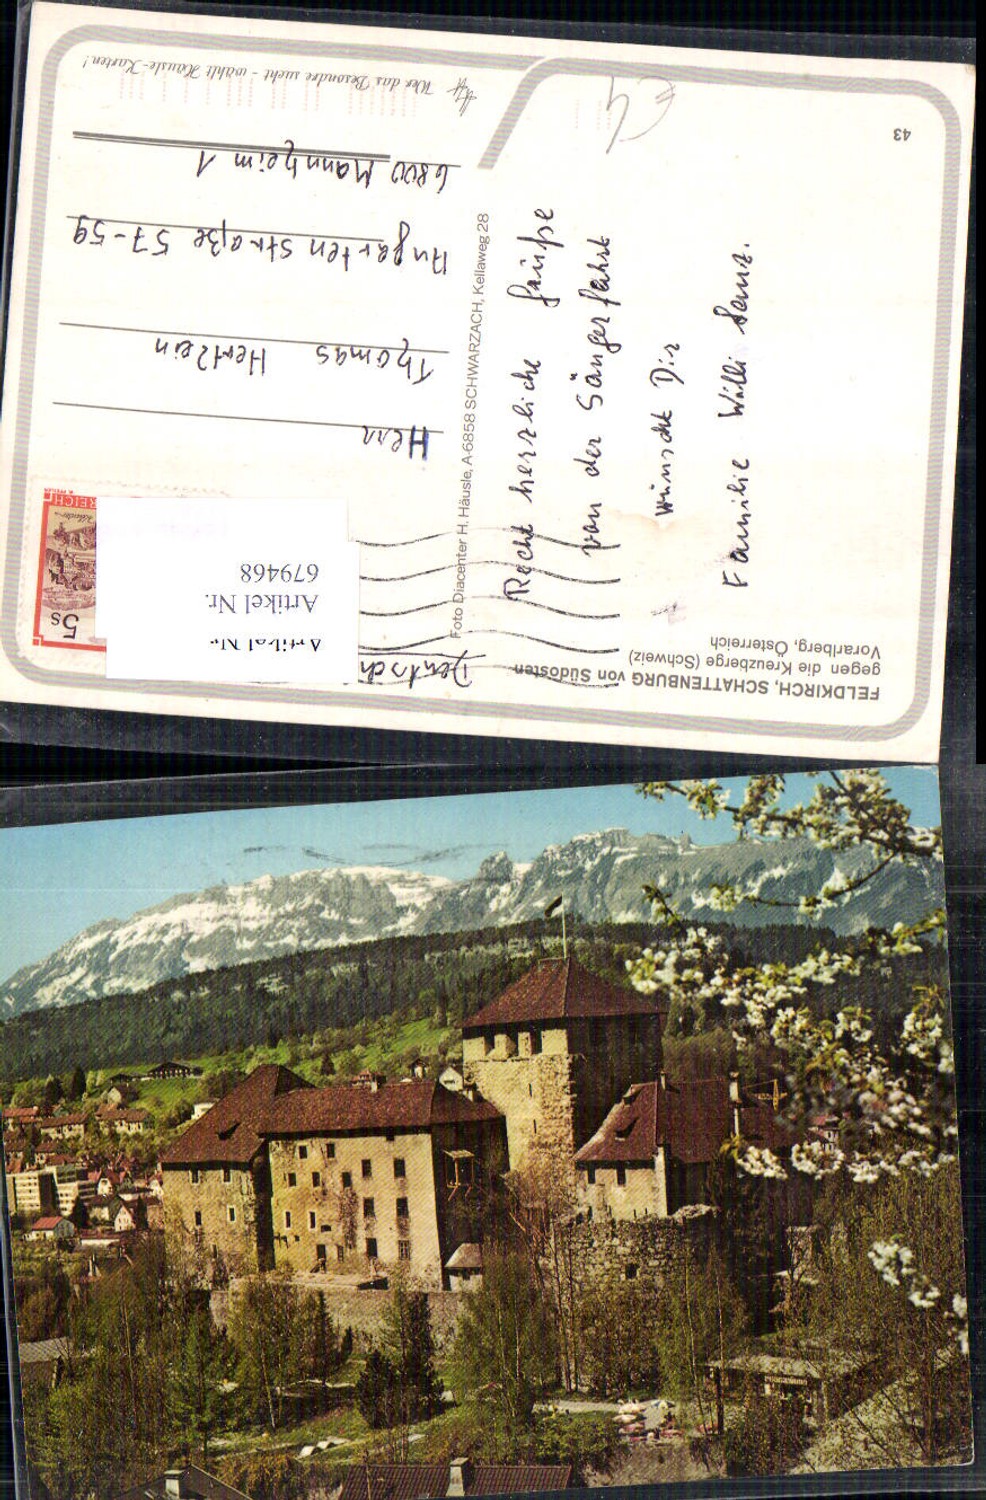 FELDKIRCH, SCHATTENBURG von Südosten
gegen die Kreuzberge (Schweiz)
Vorarlberg, Österreich
Recht herzliche Grüße
von der Sängerfahrt
wünscht Dir
Familie Willi
Foto Diacenter H. Häusle, A-6858 SCHWARZACH, Kellaweg 28
Artikel Nr.
Artikel Nr.
679468
5s
REICH
Herr
Thomas Hertlein
Augarten Straße 57-59
6800 Mannheim 1
Wer das Besondre sucht - wählt Häusle-Karten!
43
€ 4